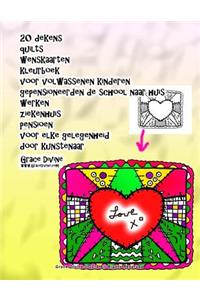 20 dekens
quilts
wenskaarten
kleurboek
voor volwassenen kinderen
gepensioneerden de school naar huis
werken
ziekenhuis
pensioen
voor elke gelegenheid
door kunstenaar
Grace Divine
Love
xo